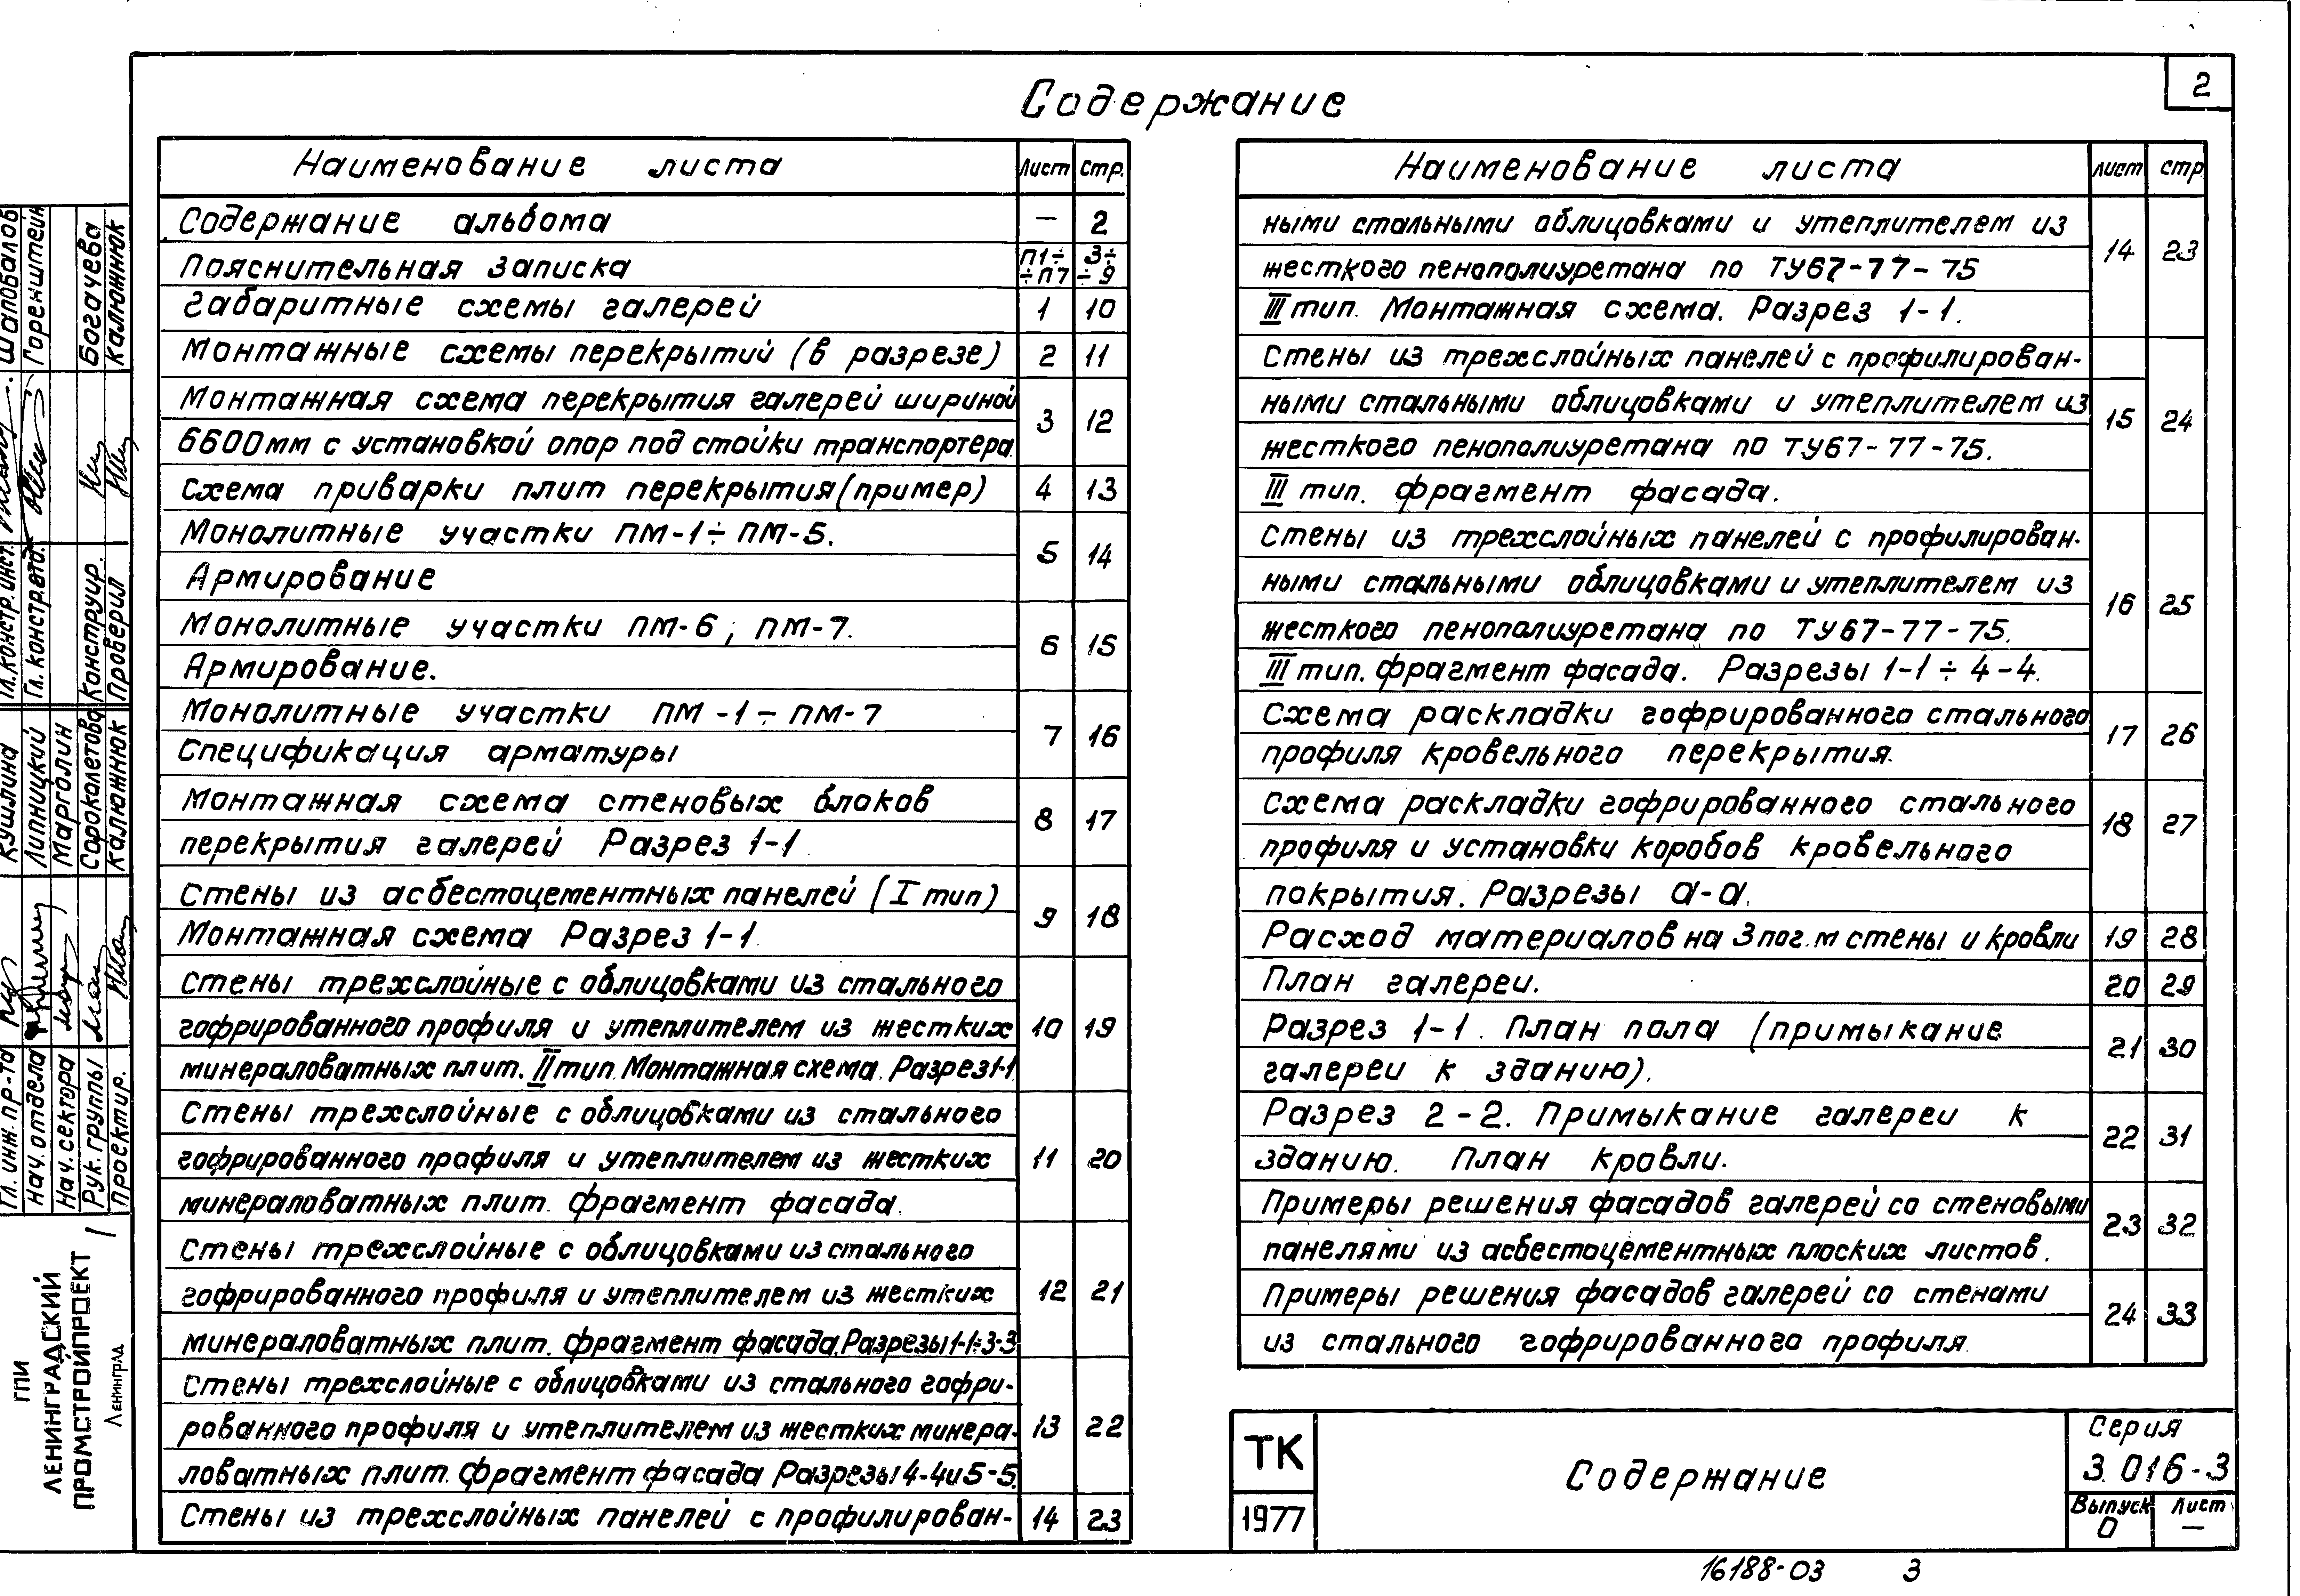 2
Содержание
Наименование листа Лист Стр.
Содержание альбома — 2
Пояснительная записка П1÷ ÷П7 3÷ ÷9
Габаритные схемы галерей 1 10
Монтажные схемы перекрытий (в разрезе) 2 11
Монтажная схема перекрытия галерей шириной
6600мм с установкой опор под стойки транспортера. 3 12
Схема приварки плит перекрытия (пример) 4 13
Монолитные участки ПМ-1÷ПМ-5.
Армирование 5 14
Монолитные участки ПМ-6, ПМ-7.
Армирование. 6 15
Монолитные участки ПМ-1÷ПМ-7
Спецификация арматуры 7 16
Монтажная схема стеновых блоков
перекрытия галерей Разрез 1-1 8 17
Стены из асбестоцементных панелей (I тип)
Монтажная схема Разрез 1-1 9 18
Стены трехслойные с облицовками из стального
гофрированного профиля и утеплителем из жестких 10 19
минераловатных плит. II тип. Монтажная схема. Разрез 1-1
Стены трехслойные с облицовками из стального
гофрированного профиля и утеплителем из жестких 11 20
минераловатных плит. Фрагмент фасада.
Стены трехслойные с облицовками из стального
гофрированного профиля и утеплителем из жестких 12 21
минераловатных плит. Фрагмент фасада. Разрезы 1-1÷3-3
Стены трехслойные с облицовками из стального гофри-
рованного профиля и утеплителем из жестких минера- 13 22
ловатных плит. Фрагмент фасада Разрезы 4-4 и 5-5.
Стены из трехслойных панелей с профилирован- 14 23
Наименование листа лист стр
ными стальными облицовками и утеплителем из
жесткого пенополиуретана по ТУ67-77-75 14 23
III тип. Монтажная схема. Разрез 1-1.
Стены из трехслойных панелей с профилирован-
ными стальными облицовками и утеплителем из 15 24
жесткого пенополиуретана по ТУ67-77-75.
III тип. Фрагмент фасада.
Стены из трехслойных панелей с профилирован-
ными стальными облицовками и утеплителем из 16 25
жесткого пенополиуретана по ТУ67-77-75.
III тип. Фрагмент фасада. Разрезы 1-1÷4-4.
Схема раскладки гофрированного стального
профиля кровельного перекрытия. 17 26
Схема раскладки гофрированного стального
профиля и установки коробов кровельного 18 27
покрытия. Разрезы а-а.
Расход материалов на 3 пог. м стены и кровли 19 28
План галереи. 20 29
Разрез 1-1. План пола (примыкание
галереи к зданию). 21 30
Разрез 2-2. Примыкание галереи к
зданию. План кровли. 22 31
Примеры решения фасадов галерей со стеновыми
панелями из асбестоцементных плоских листов. 23 32
Примеры решения фасадов галерей со стенами
из стального гофрированного профиля. 24 33
ТК
1977
Содержание
Серия
3.016-3
Выпуск Лист
0 —
16188-03 3
Гл. инж. пр-та Кушлина Гл. констр. инст. Шаповалов
Нач. отдела Липницкий Гл. констр. отд. Горенштейн
Нач. сектора Марголин
Рук. группы Сороколетова Конструир. Богачева
Проектир. Калюжнюк Проверил Калюжнюк
ГПИ
ЛЕНИНГРАДСКИЙ
ПРОМСТРОЙПРОЕКТ
Ленинград